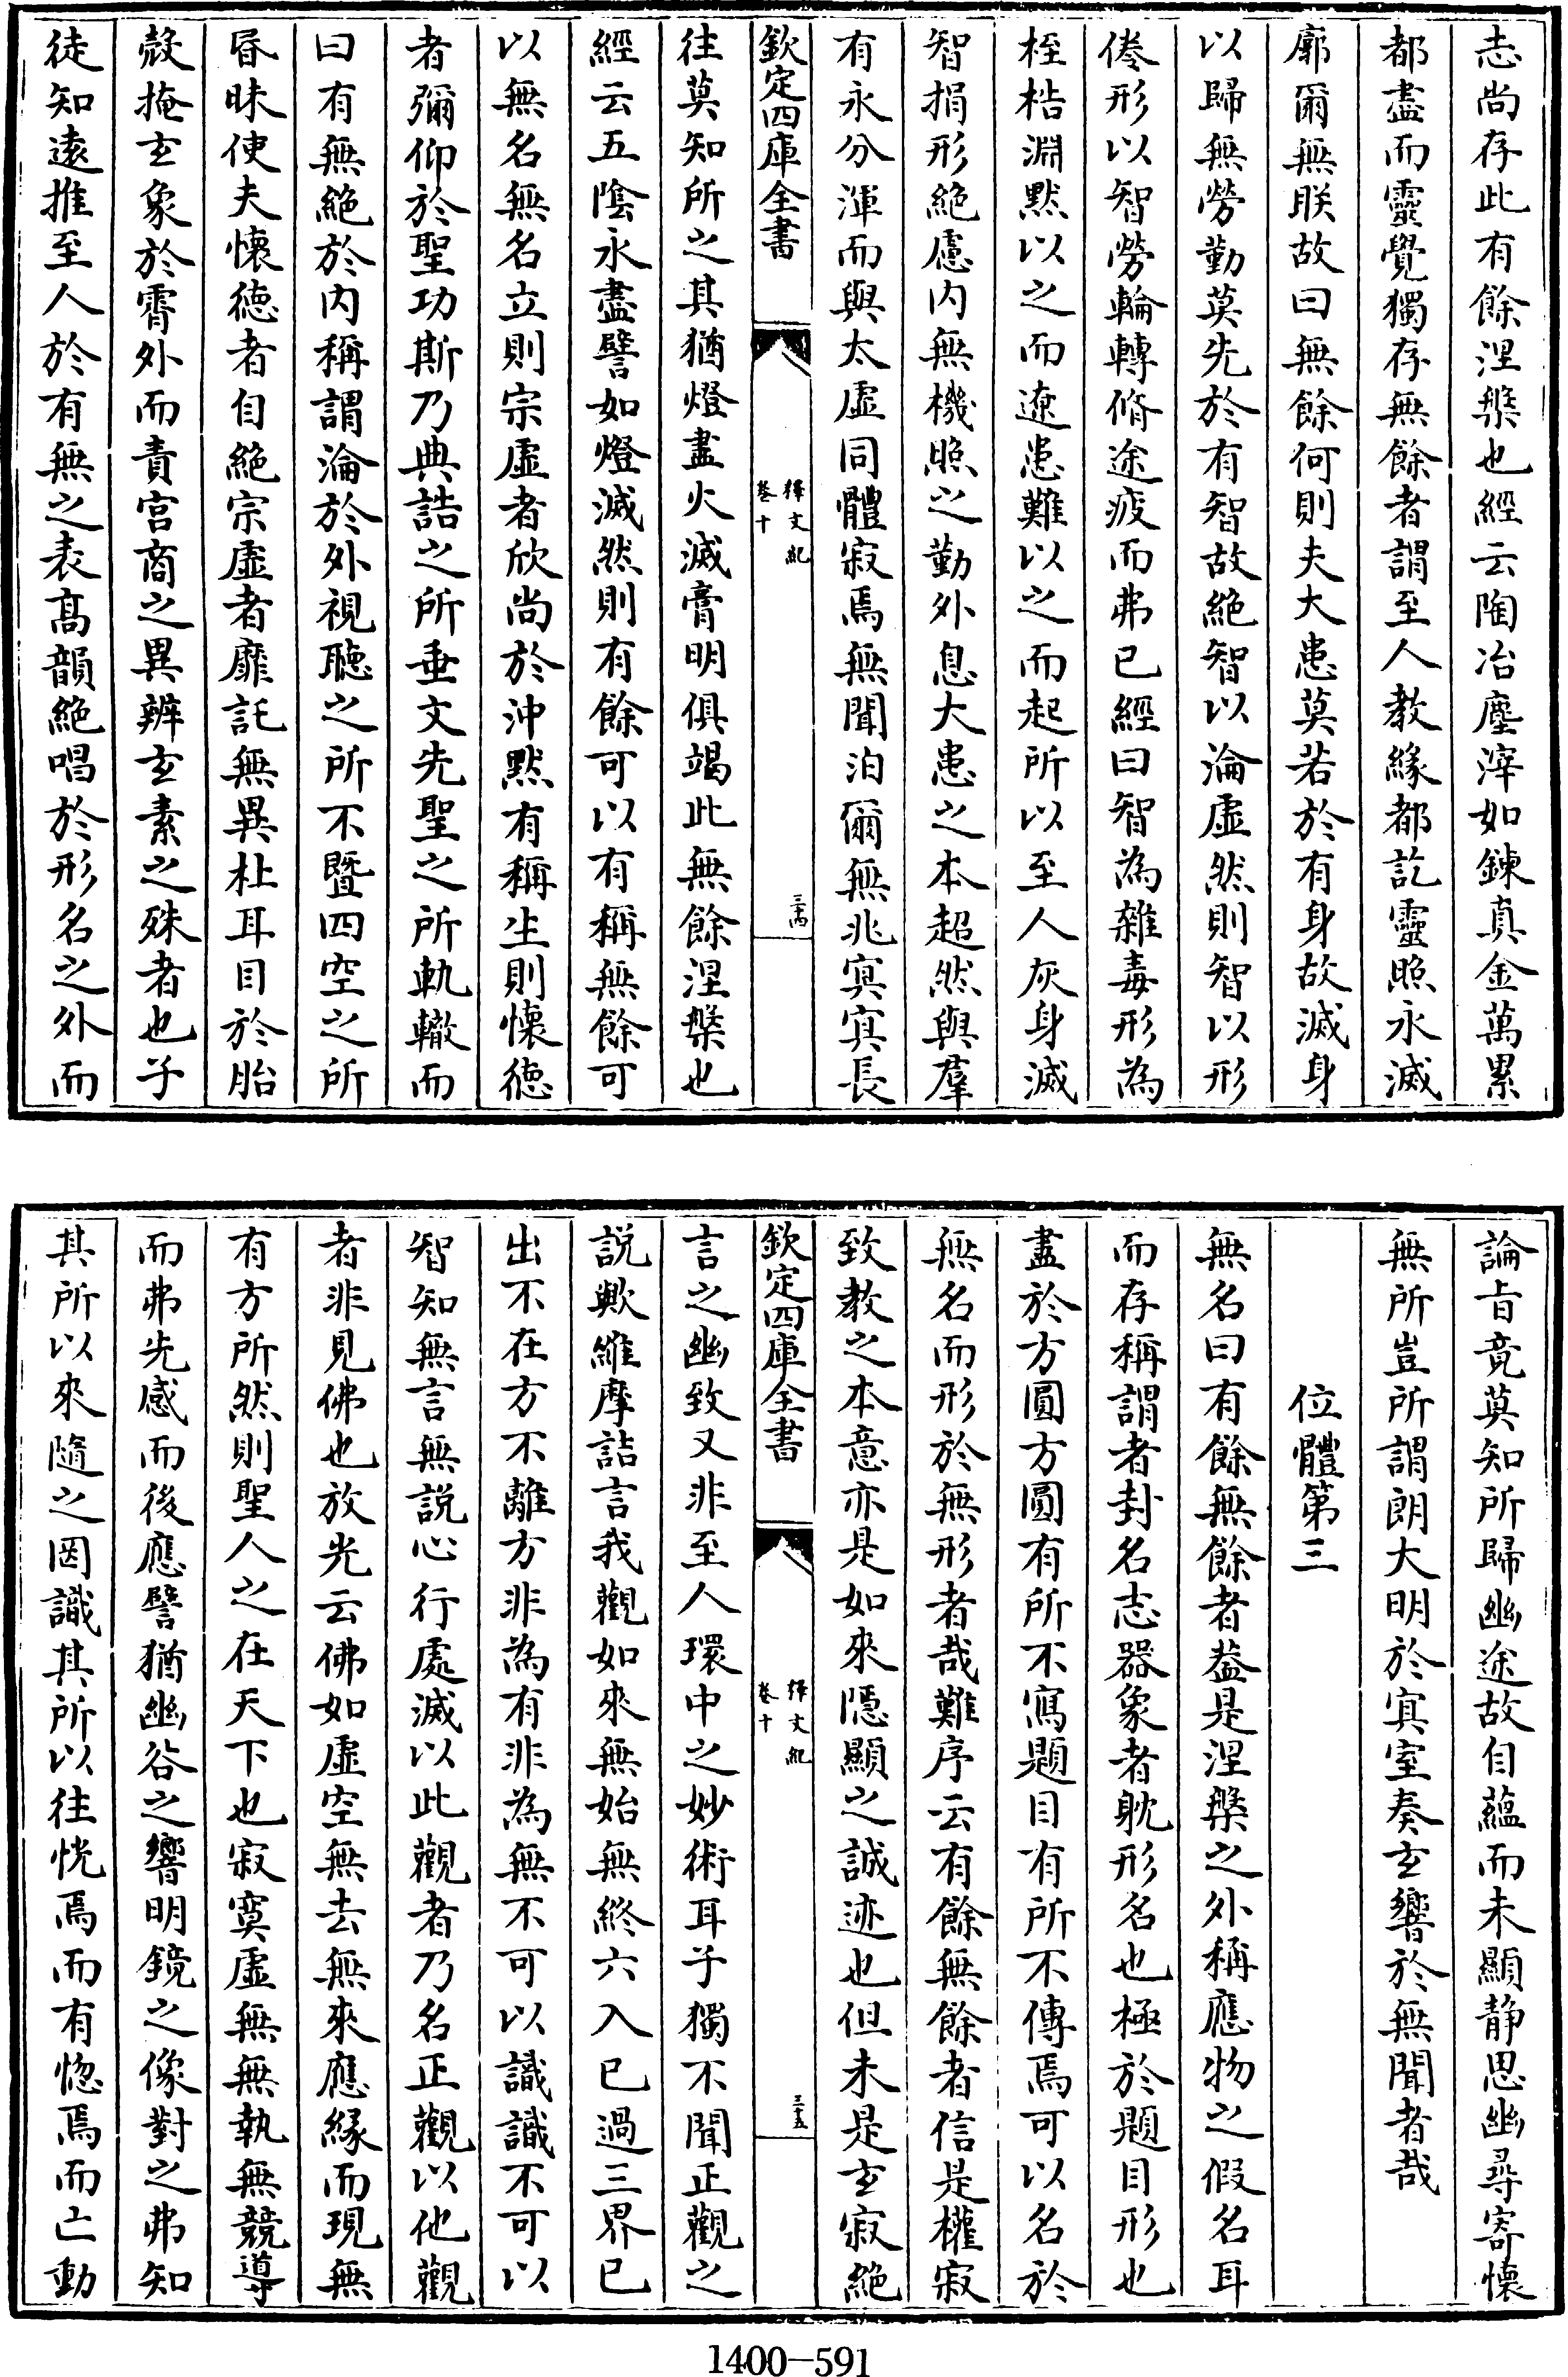 志尚存此有餘涅槃也經云陶冶塵滓如鍊真金萬累
都盡而靈覺獨存無餘者謂至人教緣都訖靈照永滅
廓爾無朕故曰無餘何則夫大患莫若於有身故滅身
以歸無勞勤莫先於有智故絶智以淪虚然則智以形
倦形以智勞輪轉脩途疲而弗已經曰智為雜毒形為
桎梏淵黙以之而遼患難以之而起所以至人灰身滅
智捐形絶慮内無機照之勤外息大患之本超然與羣
有永分渾而與太虚同體寂焉無聞泊爾無兆冥冥長
欽定四庫全書
釋文紀
卷十
三十四
往莫知所之其猶燈盡火滅膏明俱竭此無餘涅槃也
經云五陰永盡譬如燈滅然則有餘可以有稱無餘可
以無名無名立則宗虚者欣尚於沖黙有稱生則懐徳
者彌仰於聖功斯乃典誥之所垂文先聖之所軌轍而
曰有無絶於内稱謂淪於外視聴之所不暨四空之所
昏昧使夫懐徳者自絶宗虚者靡託無異杜耳目於胎
殻掩玄象於霄外而責宫商之異辨玄素之殊者也子
徒知逺推至人於有無之表髙韻絶唱於形名之外而
論㫖竟莫知所歸幽途故自蘊而未顯静思幽尋寄懐
無所豈所謂朗大明於冥室奏玄響於無聞者哉
位體第三
無名曰有餘無餘者葢是涅槃之外稱應物之假名耳
而存稱謂者封名志器象者耽形名也極於題目形也
盡於方圓方圓有所不寫題目有所不傳焉可以名於
無名而形於無形者哉難序云有餘無餘者信是權寂
致教之本意亦是如來隱顯之誠迹也但未是玄寂絶
欽定四庫全書
釋文紀
卷十
三十五
言之幽致又非至人環中之妙術耳子獨不聞正觀之
説歟維摩詰言我觀如來無始無終六入已過三界已
出不在方不離方非為有非為無不可以識識不可以
智知無言無説心行處滅以此觀者乃名正觀以他觀
者非見佛也放光云佛如虚空無去無來應緣而現無
有方所然則聖人之在天下也寂寞虚無無執無競導
而弗先感而後應譬猶幽谷之響明鏡之像對之弗知
其所以來隨之罔識其所以往恍焉而有惚焉而亡動
1400—591